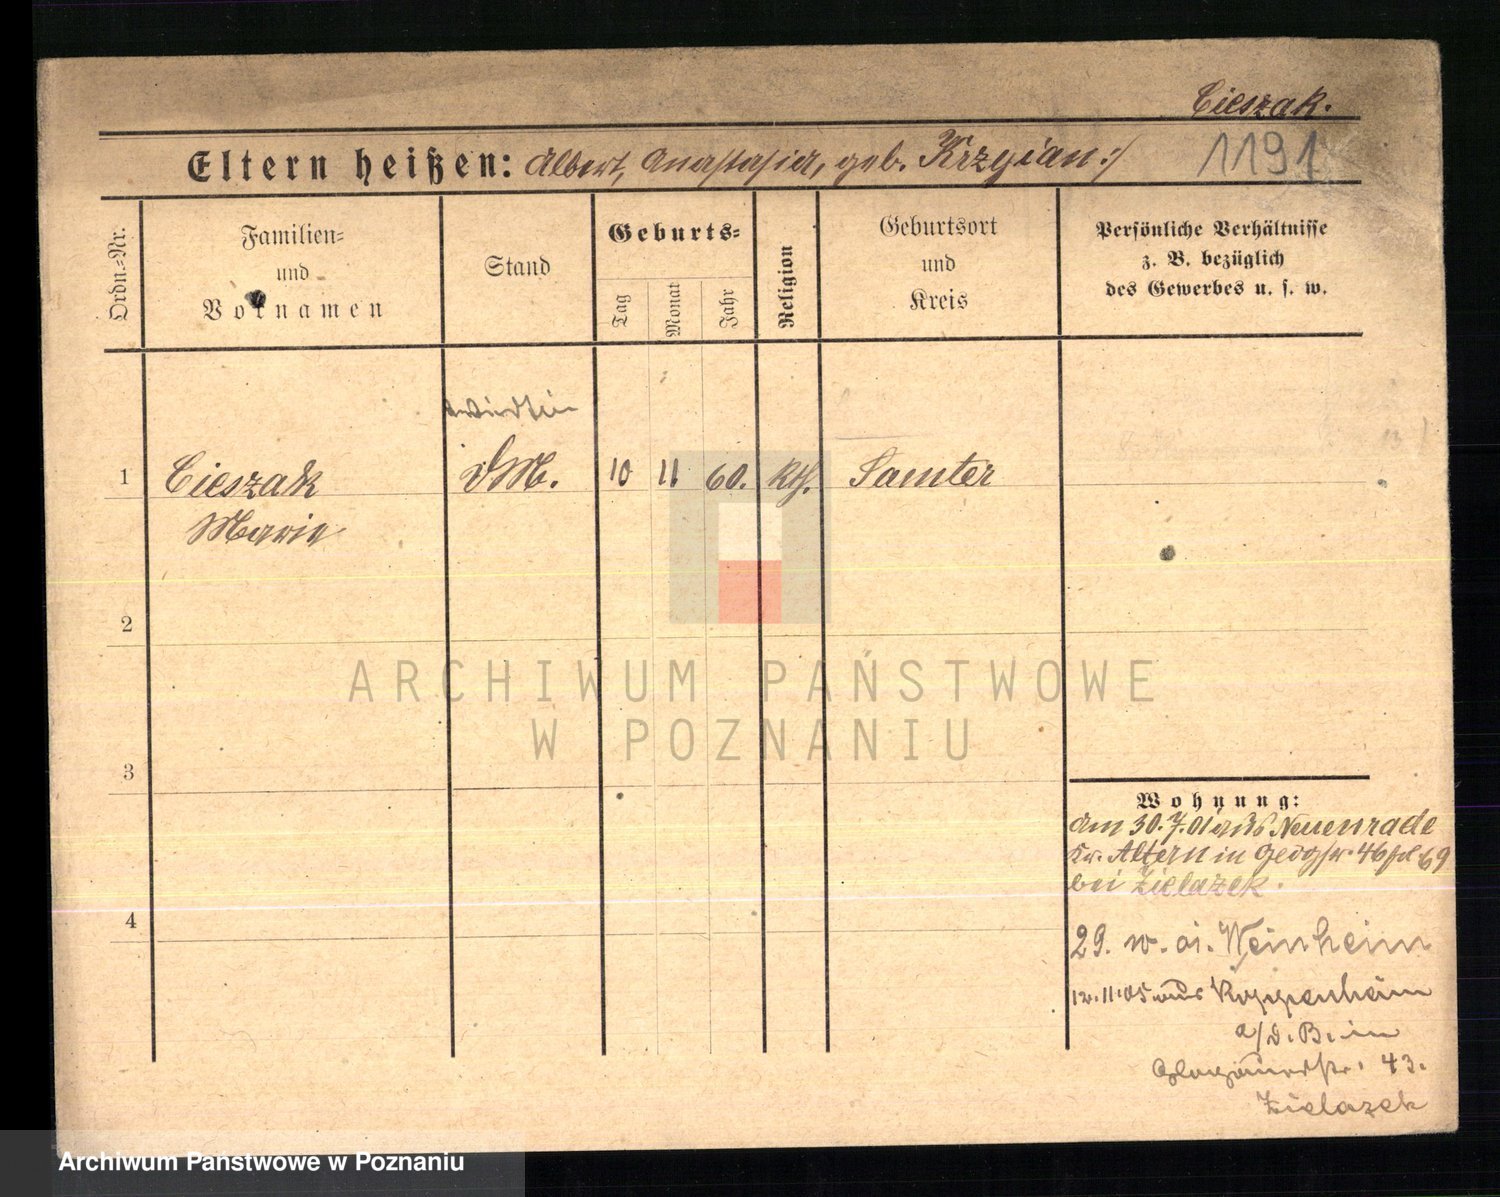 Cieszak.
Eltern heißen: Albert, Anastasia, geb. Krzyian :/
1191
Ordn.=Nr.
Familien=
und
Vornamen
Stand
Geburts=
Tag
Monat
Jahr
Religion
Geburtsort
und
Kreis
Persönliche Verhältnisse
z. B. bezüglich
des Gewerbes u. s. w.
Wirtin
1 Cieszak DM. 10 11 60. kth. Samter
Marie
2
3
4
ARCHIWUM PAŃSTWOWE
W POZNANIU
Wohnung:
am 30.7.01 aus Neuenrade
Kr. Altena in 46 69
bei Zielazek.
29. Weinheim
11.05 aus Koppenheim
a/d. B. in
Glogauerstr. 43.
Zielazek
Archiwum Państwowe w Poznaniu